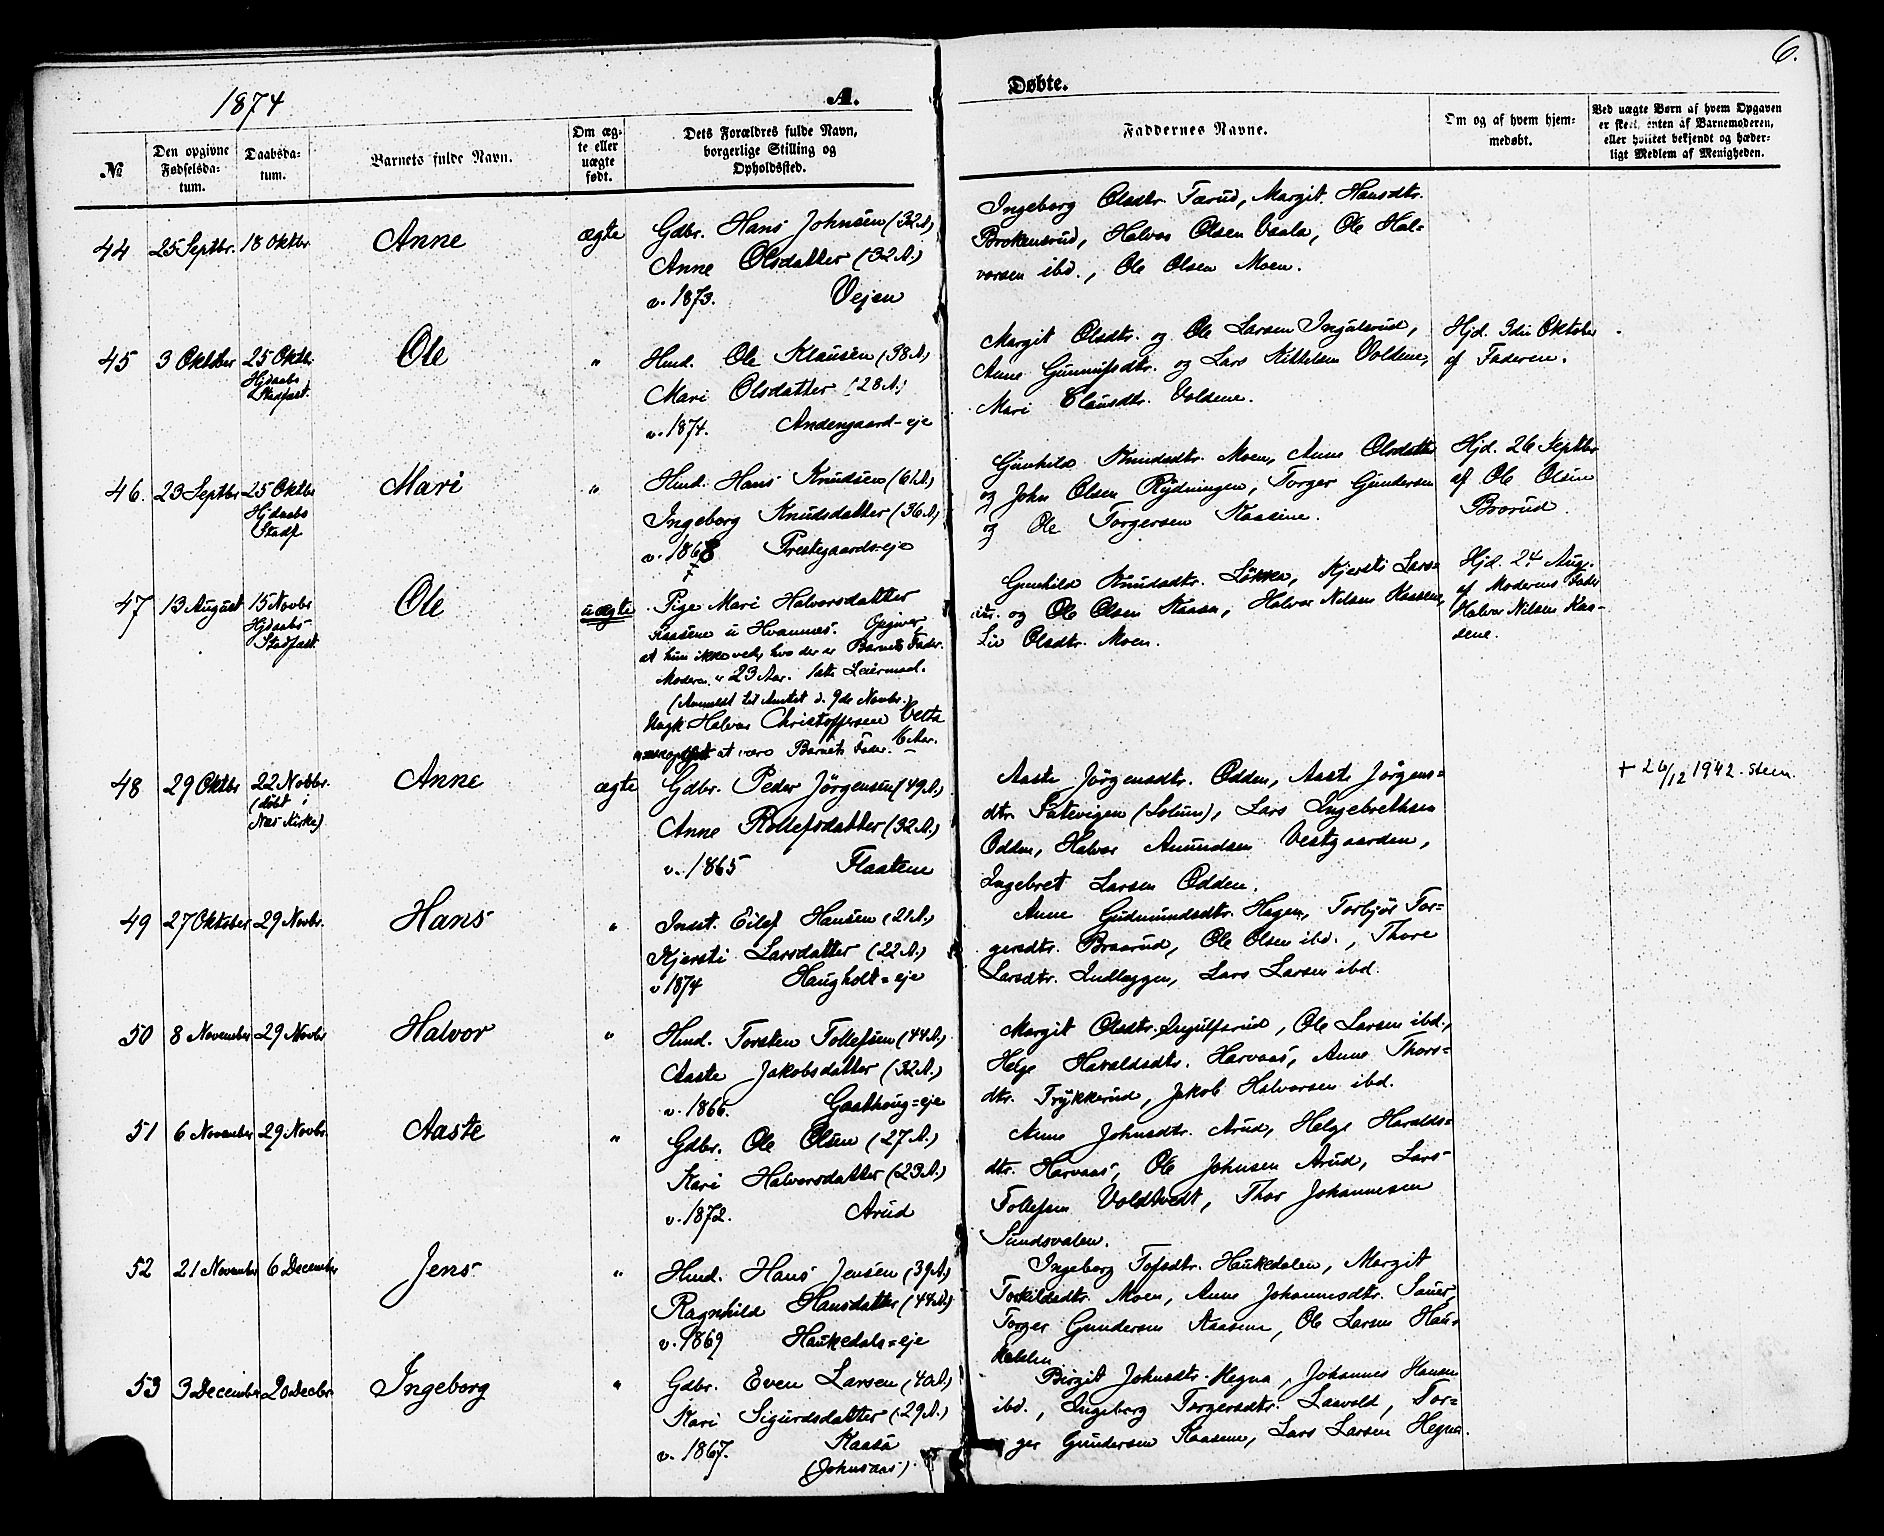 6.
1874
A.
Døbte.
№
Den opgivne Fødselsdatum.
Daabsdatum.
Barnets fulde Navn.
Om ægte eller uægte født.
Dets Forældres fulde Navn, borgerlige Stilling og Opholdssted.
Faddernes Navne.
Om og af hvem hjemmedøbt.
Ved uægte Børn af hvem Opgaven er skeet, enten af Barnemoderen, eller hvilket bekjendt og hæderligt Medlem af Menigheden.
44
25 Septbr.
18 Oktbr
Anne
ægte
Gdbr. Hans Johnsen (32 A)
Anne Olsdatter (32 A.)
v. 1873. Vejen
Ingeborg Olsdtr. Tærud, Margit Hansdtr.
Brokensrud, Halvor Olsen Vaala, Ole Hal=
vorsen ibd., Ole Olsen Moen.
45
3 Oktober
25 Oktb.
Hjdaabs
Stadfæst.
Ole
"
Hmd. Ole Klausen (38 A.)
Mari Olsdatter (28 A.)
v. 1874. Andengaard=eje
Margit Olsdtr. og Ole Larsen Ingulsrud,
Anne Gunnufsdtr. og Lars Kittelsen Voldene,
Mari Clausdtr. Voldene.
Hjd. 3die Oktober
af Faderen.
46.
23 Septbr
25 Oktbr
Hjdaabs
Stadf.
Mari
"
Hmd. Hans Knudsen (61 A)
Ingeborg Knudsdatter (36 A.)
v. 1868 Prestegaards=eje
Gunhild Knudsdtr. Moen, Anne Olsdatter
og John Olsen Rydningen, Torger Gundersen
og Ole Torgersen Kaasene.
Hjd. 26 Septbr
af Ole Olsen
Brorud.
47
13 August
15 Novbr
Hjdaabs-
Stadfæst.
Ole
uægte
Pige Mari Halvorsdatter
Kaasene u. Hvamnes. Opgiver,
at hun ikke ved, hvo der er Barnets Fader.
Moderen er 23 Aar. 1ste Leiermaal.
(Anmeldt til Amtet d. 9de Novbr.)
Ungk. Halvor Christoffersen Vetta
at være Barnets Fader. Aar.
Gunhild Knudsdtr. Løkka, Kjersti Lars=
dtr. og Ole Olsen Kaasa, Halvor Nilsen Kaasene,
Liv Olsdtr. Moen.
Hjd. 24 Aug.
af Moderens Fader
Halvor Nilsen Kaa=
sene.
48
29 Oktbr
22 Novbr.
(døbt i
Næs Kirke)
Anne
ægte
Gdbr. Peder Jørgensen (49 A.)
Anne Rollefsdatter (32 A.)
v. 1865 Flaatene
Aaste Jørgensdtr. Odden, Aaste Jørgens=
dtr. Fatevigen (Solum), Lars Ingebrethsen
Odden, Halvor Amundsen Vestgaarden,
Ingebret Larsen Odden.
+ 26/12 1942. sten.
49
27 Oktober
29 Novbr.
Hans
"
Indst. Eilef Hansen (21 A.)
Kjersti Larsdatter (22 A.)
v 1874 Haugholt=eje
Anne Gudmundsdtr. Hagen, Torbjør Tor=
gersdtr. Braarud, Ole Olsen ibd., Thore
Larsdtr. Indlæggen, Lars Larsen ibd.
50
8 November
29 Novbr
Halvor
"
Hmd. Torsten Tollefsen (44 A.)
Aaste Jakobsdatter (32 A.)
v. 1866. Gaathaug=eje
Margit Olsdtr. Ingulfsrud, Ole Larsen ibd.,
Helge Haraldsdtr. Harvaas, Anne Thors=
dtr. Trykkerud, Jakob Halvorsen ibd.
51
6 November
29 Novbr.
Aaste
"
Gdbr. Ole Olsen (27 A.)
Kari Halvorsdatter (23 A.)
v. 1872. Arud
Anne Johnsdtr. Arud, Helge Haralds=
dtr. Harvaas, Ole Johnsen Arud, Lars
Tollefsen Voldtvedt, Thor Johannesen
Sundsvalen.
52
21 November
6 December
Jens
"
Hmd. Hans Jensen (39 A)
Ragnhild Hansdatter (44 A)
v. 1869 Haukedals=eje
Ingeborg Tofsdtr. Haukedalen, Margit
Torkildsdtr. Moen, Anne Johannesdtr. Sauer,
Torger Gundersen Kaasene, Ole Larsen Hau=
kedalen
53
3 December
20 Decbr.
Ingeborg
"
Gdbr. Even Larsen (40 A.)
Kari Sigurdsdatter (29 A.)
v. 1867. Kaasa
(Johnsaas)
Birgit Johnsdtr. Hegna, Johannes Hansen
ibd., Ingeborg Torgersdtr. Laavold, Tor=
ger Gundersen Kaasene, Lars Larsen Hegna.